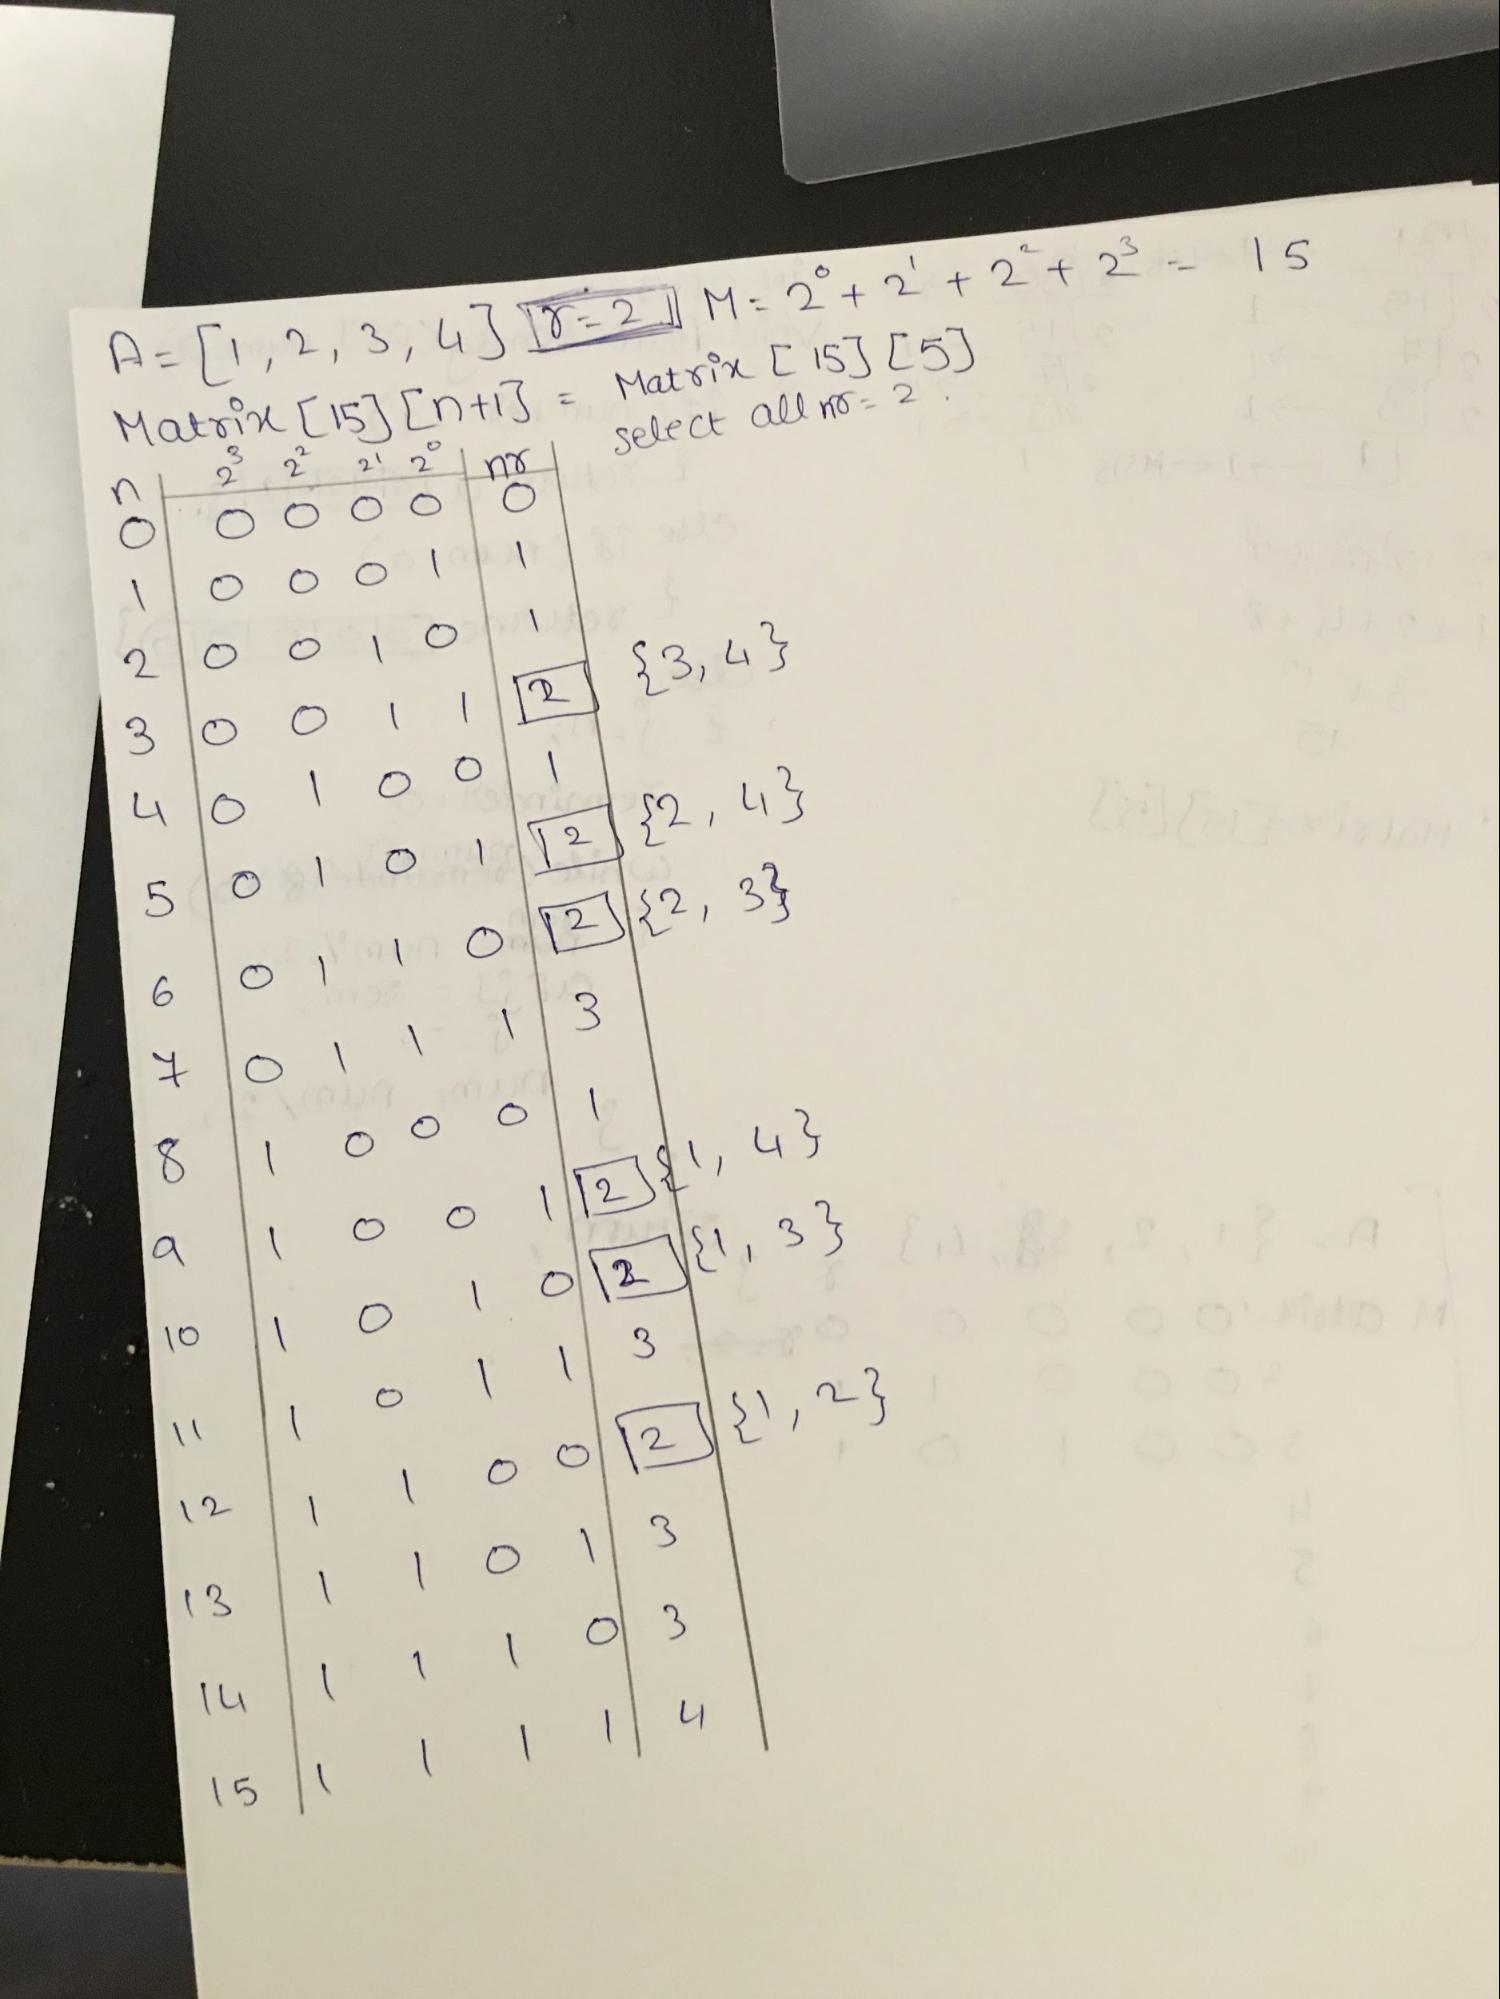 A = [1, 2, 3, 4] r = 2 M = 2⁰ + 2¹ + 2² + 2³ = 15
Matrix [15] [n+1] = Matrix [15] [5]
select all nr = 2.
n 2³ 2² 2¹ 2⁰ nr
0 0 0 0 0 0
1 0 0 0 1 1
2 0 0 1 0 1
3 0 0 1 1 2 {3, 4}
4 0 1 0 0 1
5 0 1 0 1 2 {2, 4}
6 0 1 1 0 2 {2, 3}
7 0 1 1 1 3
8 1 0 0 0 1
9 1 0 0 1 2 {1, 4}
10 1 0 1 0 2 {1, 3}
11 1 0 1 1 3
12 1 1 0 0 2 {1, 2}
13 1 1 0 1 3
14 1 1 1 0 3
15 1 1 1 1 4